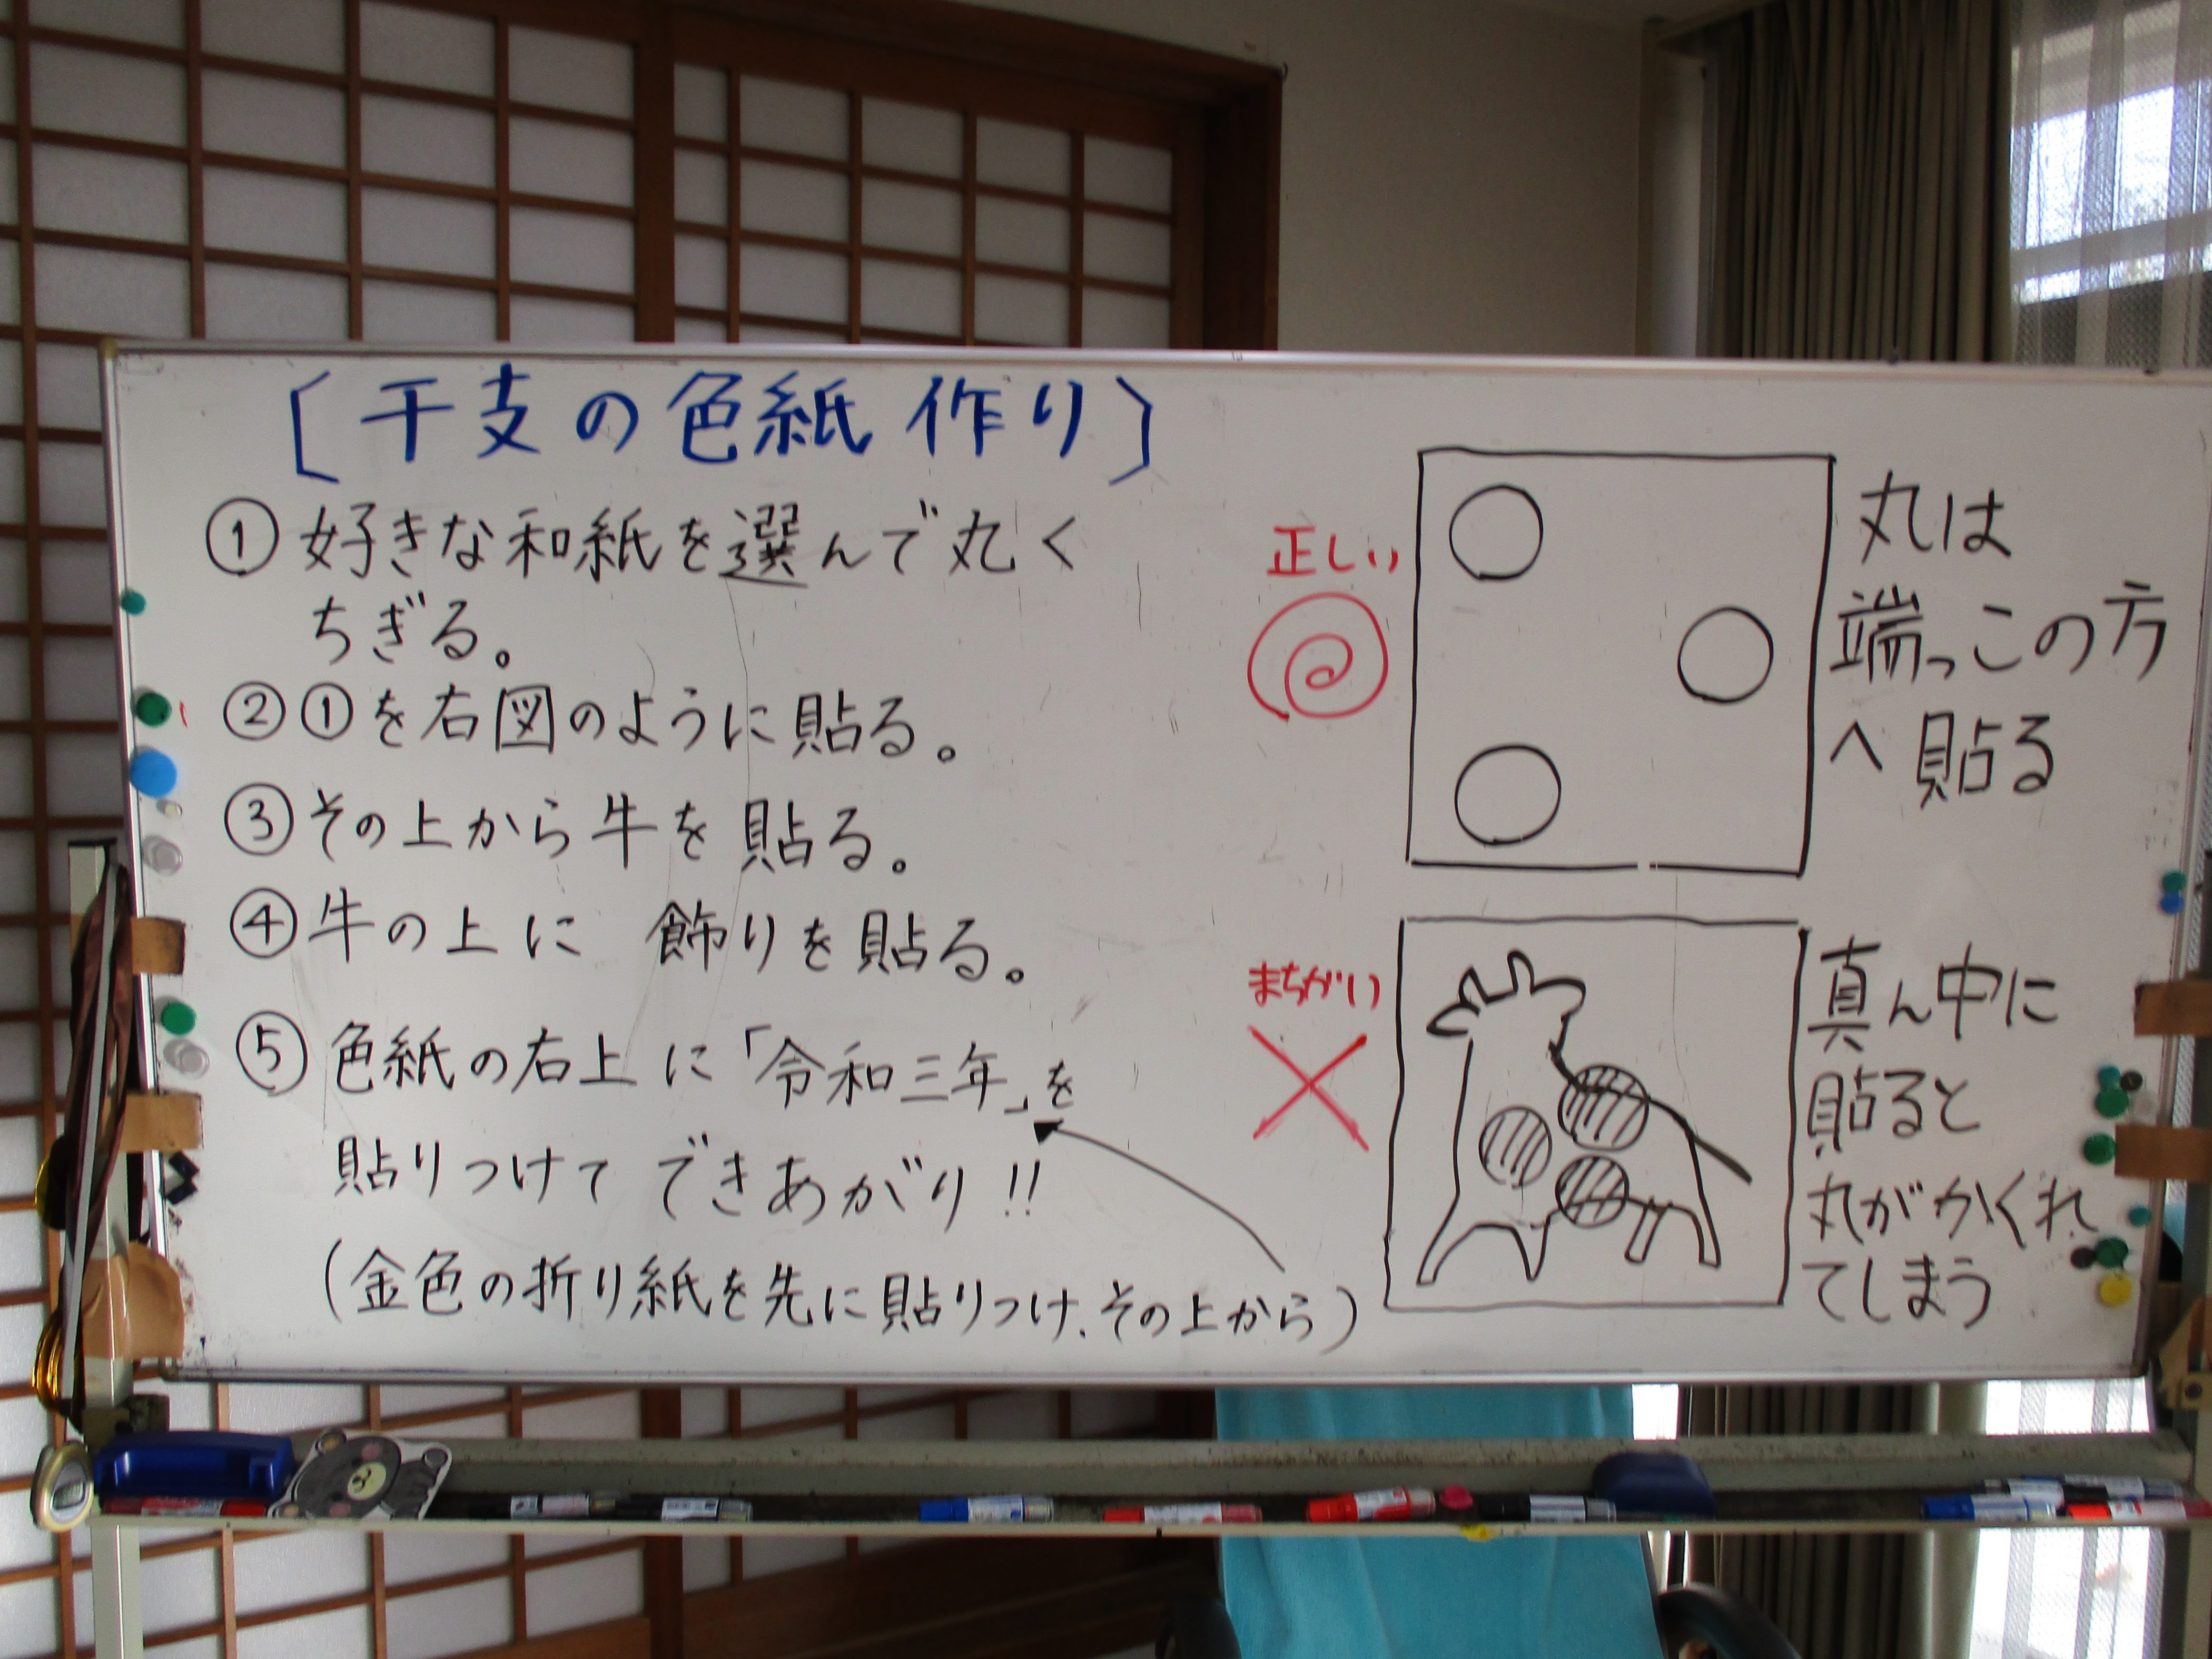 〔干支の色紙作り〕
①好きな和紙を選んで丸く
ちぎる。
②①を右図のように貼る。
③その上から牛を貼る。
④牛の上に 飾りを貼る。
⑤色紙の右上に「令和三年」を
貼りつけて できあがり!!
(金色の折り紙を先に貼りつけ、その上から)
正しい
丸は
端っこの方
へ貼る
まちがい
真ん中に
貼ると
丸がかくれ
てしまう